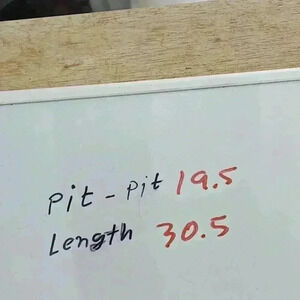 Pit - Pit 19.5
Length 30.5